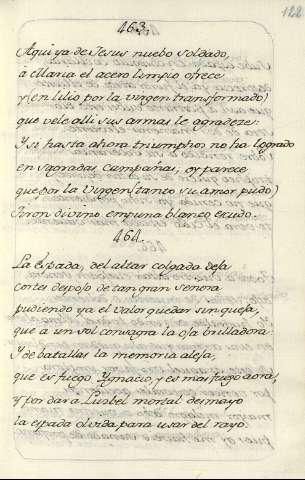 122
463.
Aqui ya de Jesus nuebo soldado,
à Maria el acero limpio ofrece
y (en lilio por la virgen transformado)
que vele alli sus armas le agradeze.
Y si hasta ahora triumphos no ha logrado
en sagradas campañas, oy parece
que por la Virgen (tanto su amor pudo)
divino empuña blanco escudo.
464.
La espada, del altar colgada deja
cortes despojo de tan gran señora
pudiendo ya el valor quedar sin queja,
que à un sol consagra la oja brilladora.
Y de batallas la memoria aleja,
que es fuego Ygnacio, y es mas fuego aora,
y por dar à Luzbel mortal desmayo
la espada olvida para usar del rayo.